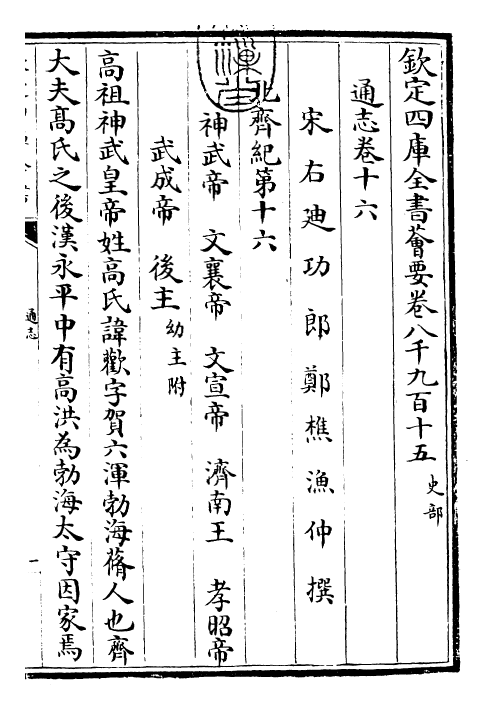 欽定四庫全書薈要卷八千九百十五 史部
通志卷十六
宋右迪功郎鄭樵漁仲撰
北齊紀第十六
神武帝 文襄帝 文宣帝 濟南王 孝昭帝
武成帝 後主 幼主附
高祖神武皇帝姓高氏諱歡字賀六渾勃海蓨人也齊
大夫高氏之後漢永平中有高洪為勃海太守因家焉
通志
一